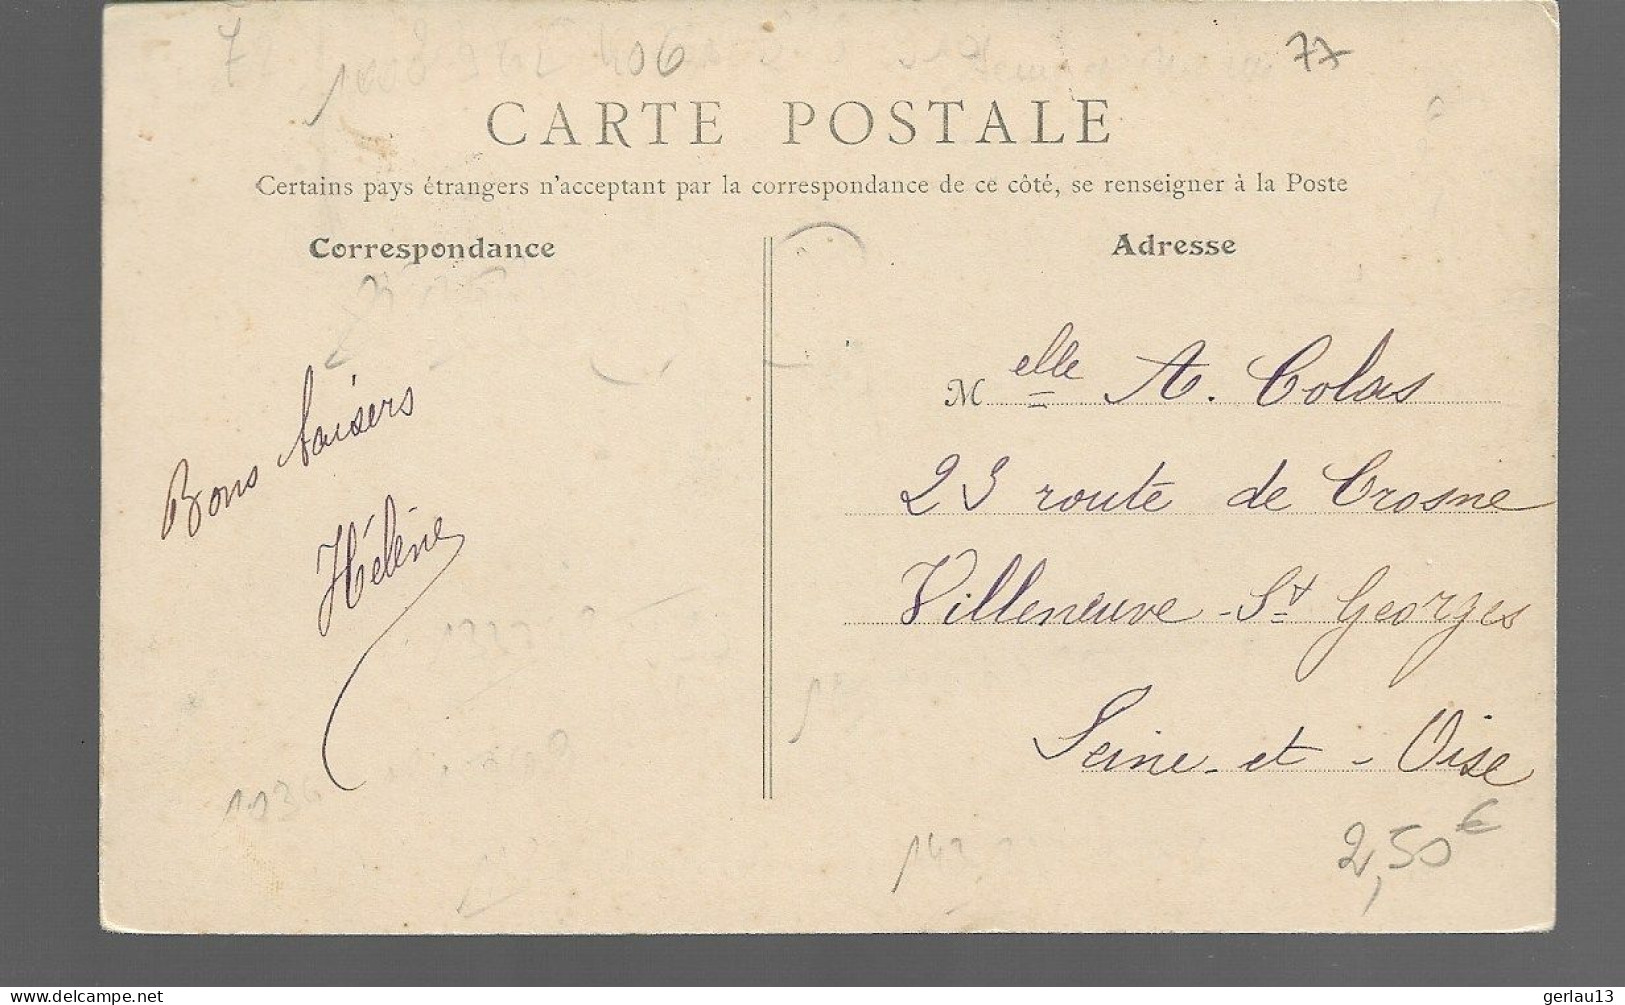 7
406
77
CARTE POSTALE
Certains pays étrangers n'acceptant par la correspondance de ce côté, se renseigner à la Poste
Correspondance
Bons baisers
Hélène
Adresse
Melle A. Colas
23 route de Crosne
Villeneuve - St Georges
Seine - et - Oise
2,50€
gerlau13